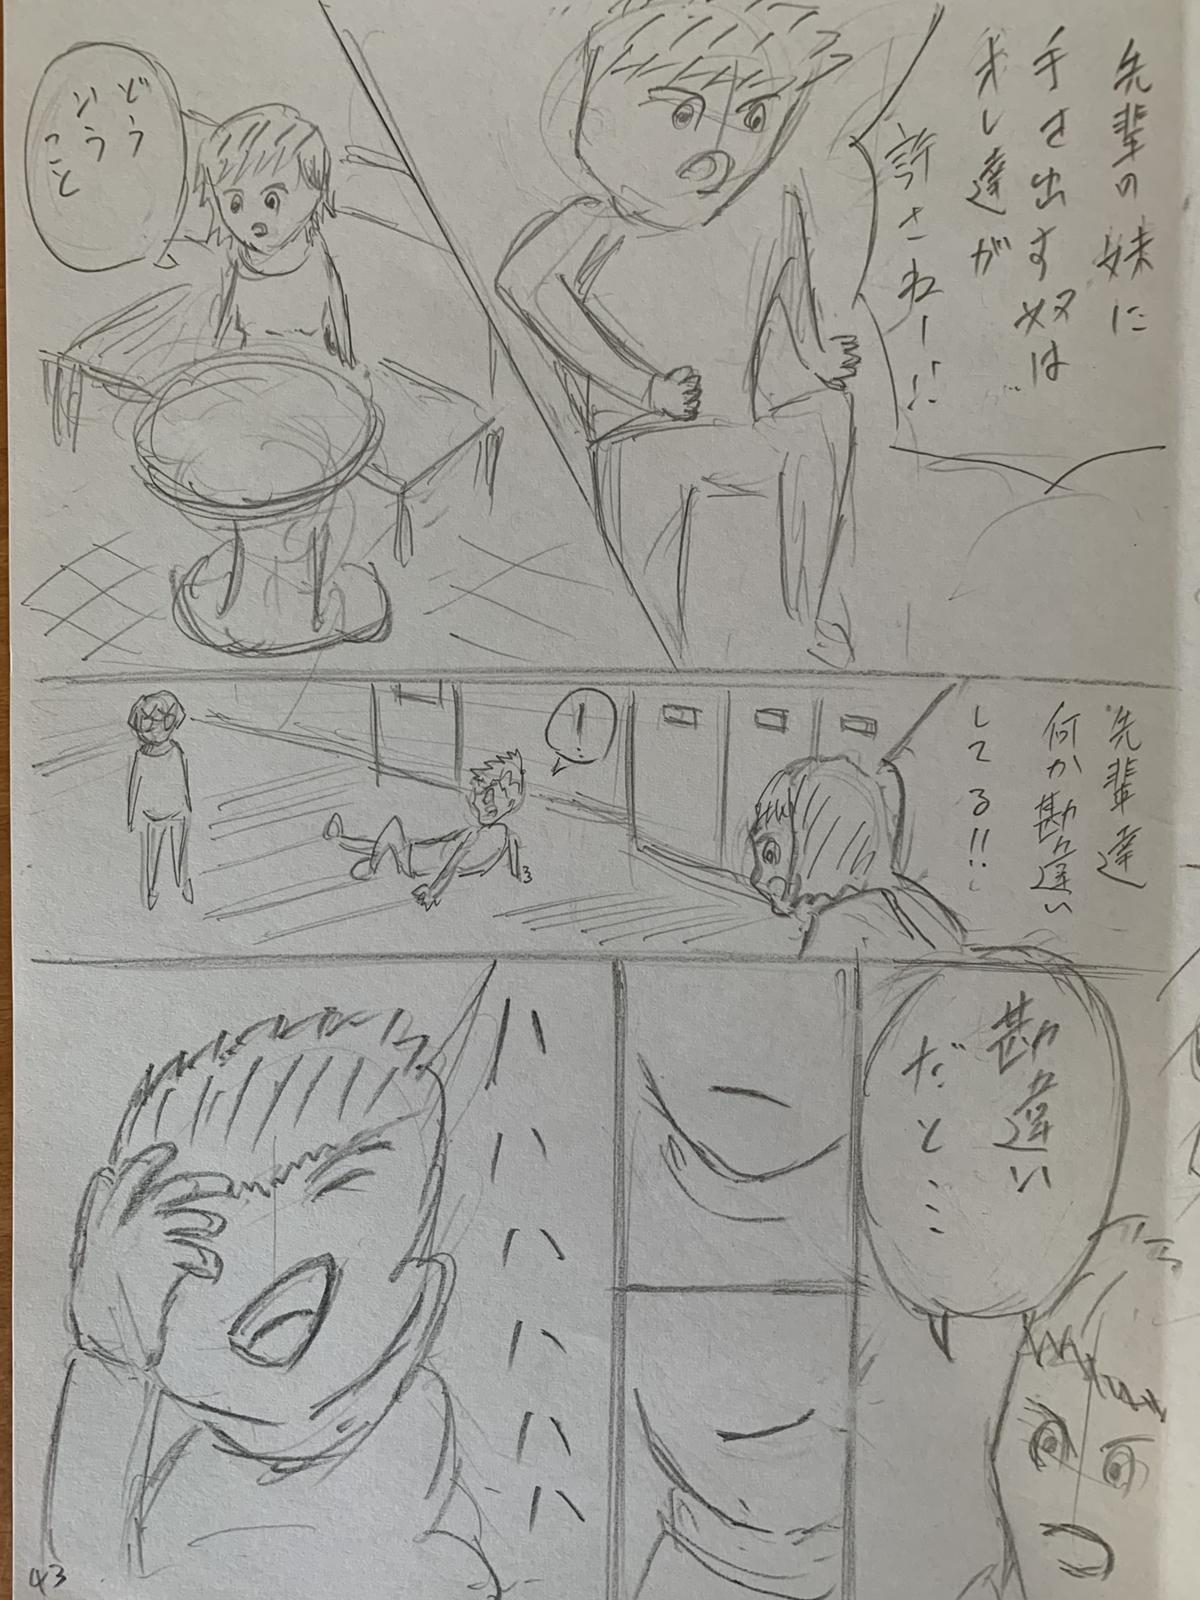 先輩の妹に
手を出す奴は
オレ達が
許さねー!!
どう
いう
こと
!
先輩達
何か勘違い
してる!!
勘違い
だと…
ハハハハハハ
43